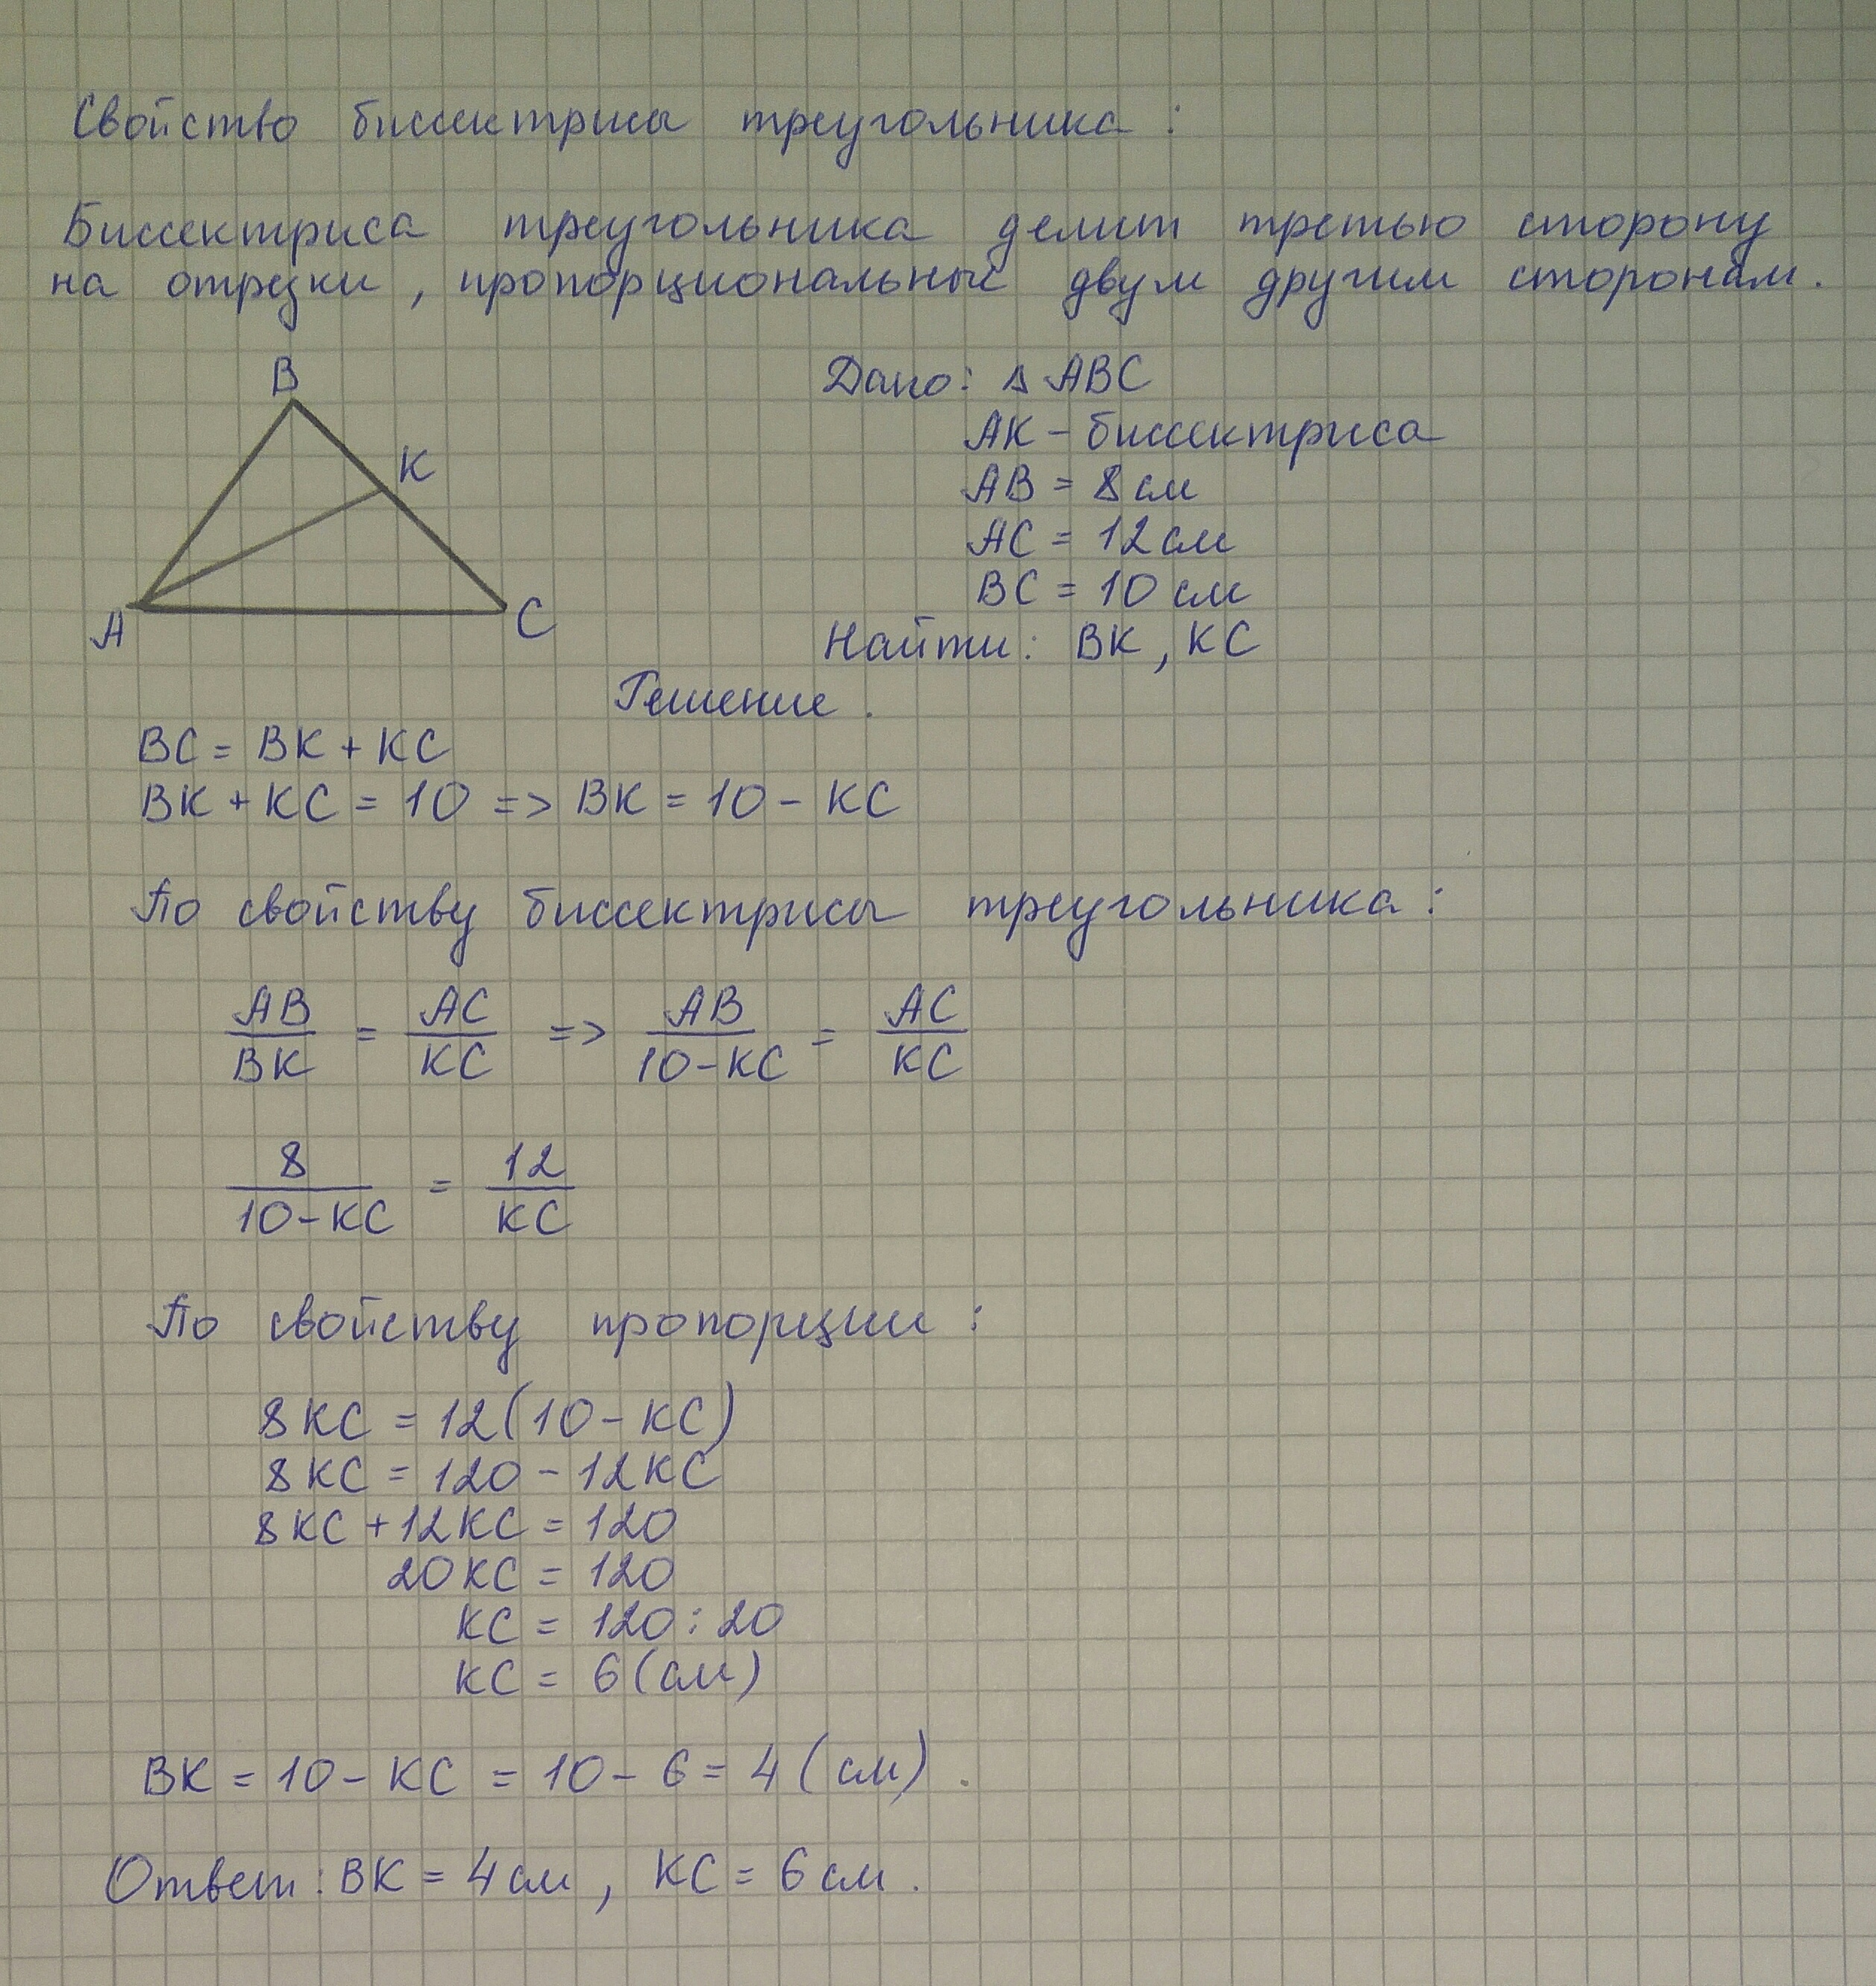 Свойство биссектрисы треугольника:
Биссектриса треугольника делит третью сторону
на отрезки, пропорциональные двум другим сторонам.
B
K
A
C
Дано: Δ ABC
AK - биссектриса
AB = 8 см
AC = 12 см
BC = 10 см
Найти: BK, KC
Решение.
BC = BK + KC
BK + KC = 10 => BK = 10 - KC
По свойству биссектрисы треугольника:
AB/BK = AC/KC => AB/10-KC = AC/KC
8/10-KC = 12/KC
По свойству пропорции:
8KC = 12(10-KC)
8KC = 120 - 12KC
8KC + 12KC = 120
20KC = 120
KC = 120:20
KC = 6 (см)
BK = 10 - KC = 10 - 6 = 4 (см).
Ответ: BK = 4 см, KC = 6 см.